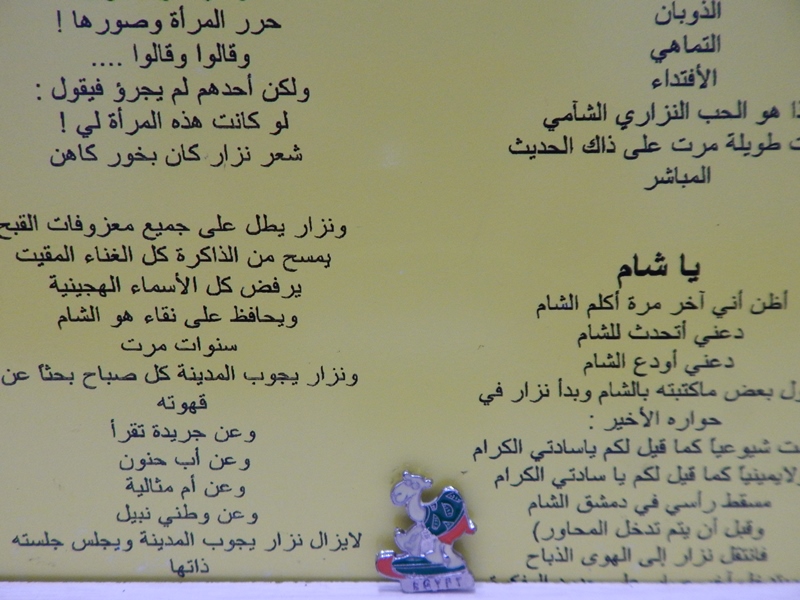 الذوبان
التماهي
الأفتداء
هو الحب النزاري الشآمي
طويلة مرت على ذاك الحديث
المباشر
يا شام
أظن أني آخر مرة أكلم الشام
دعني أتحدث للشام
دعني أودع الشام
بعض ماكتبته بالشام وبدأ نزار في
حواره الأخير :
شيوعياً كما قيل لكم ياسادتي الكرام
لايمينياً كما قيل لكم يا سادتي الكرام
مسقط رأسي في دمشق الشام
وقبل أن يتم تدخل المحاور)
فانتقل نزار إلى الهوى الذباح
حرر المرأة وصورها !
وقالوا وقالوا ....
ولكن أحدهم لم يجرؤ فيقول :
لو كانت هذه المرأة لي !
شعر نزار كان بخور كاهن
ونزار يطل على جميع معزوفات القبح
يمسح من الذاكرة كل الغناء المقيت
يرفض كل الأسماء الهجينية
ويحافظ على نقاء هو الشام
سنوات مرت
ونزار يجوب المدينة كل صباح بحثاً عن
قهوته
وعن جريدة تقرأ
وعن أب حنون
وعن أم مثالية
وعن وطني نبيل
لايزال نزار يجوب المدينة ويجلس جلسته
ذاتها
EGYPT